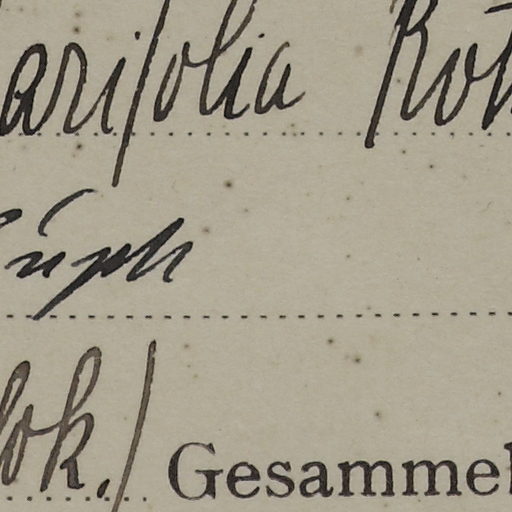 arifolia Rot
lok.) Gesammel